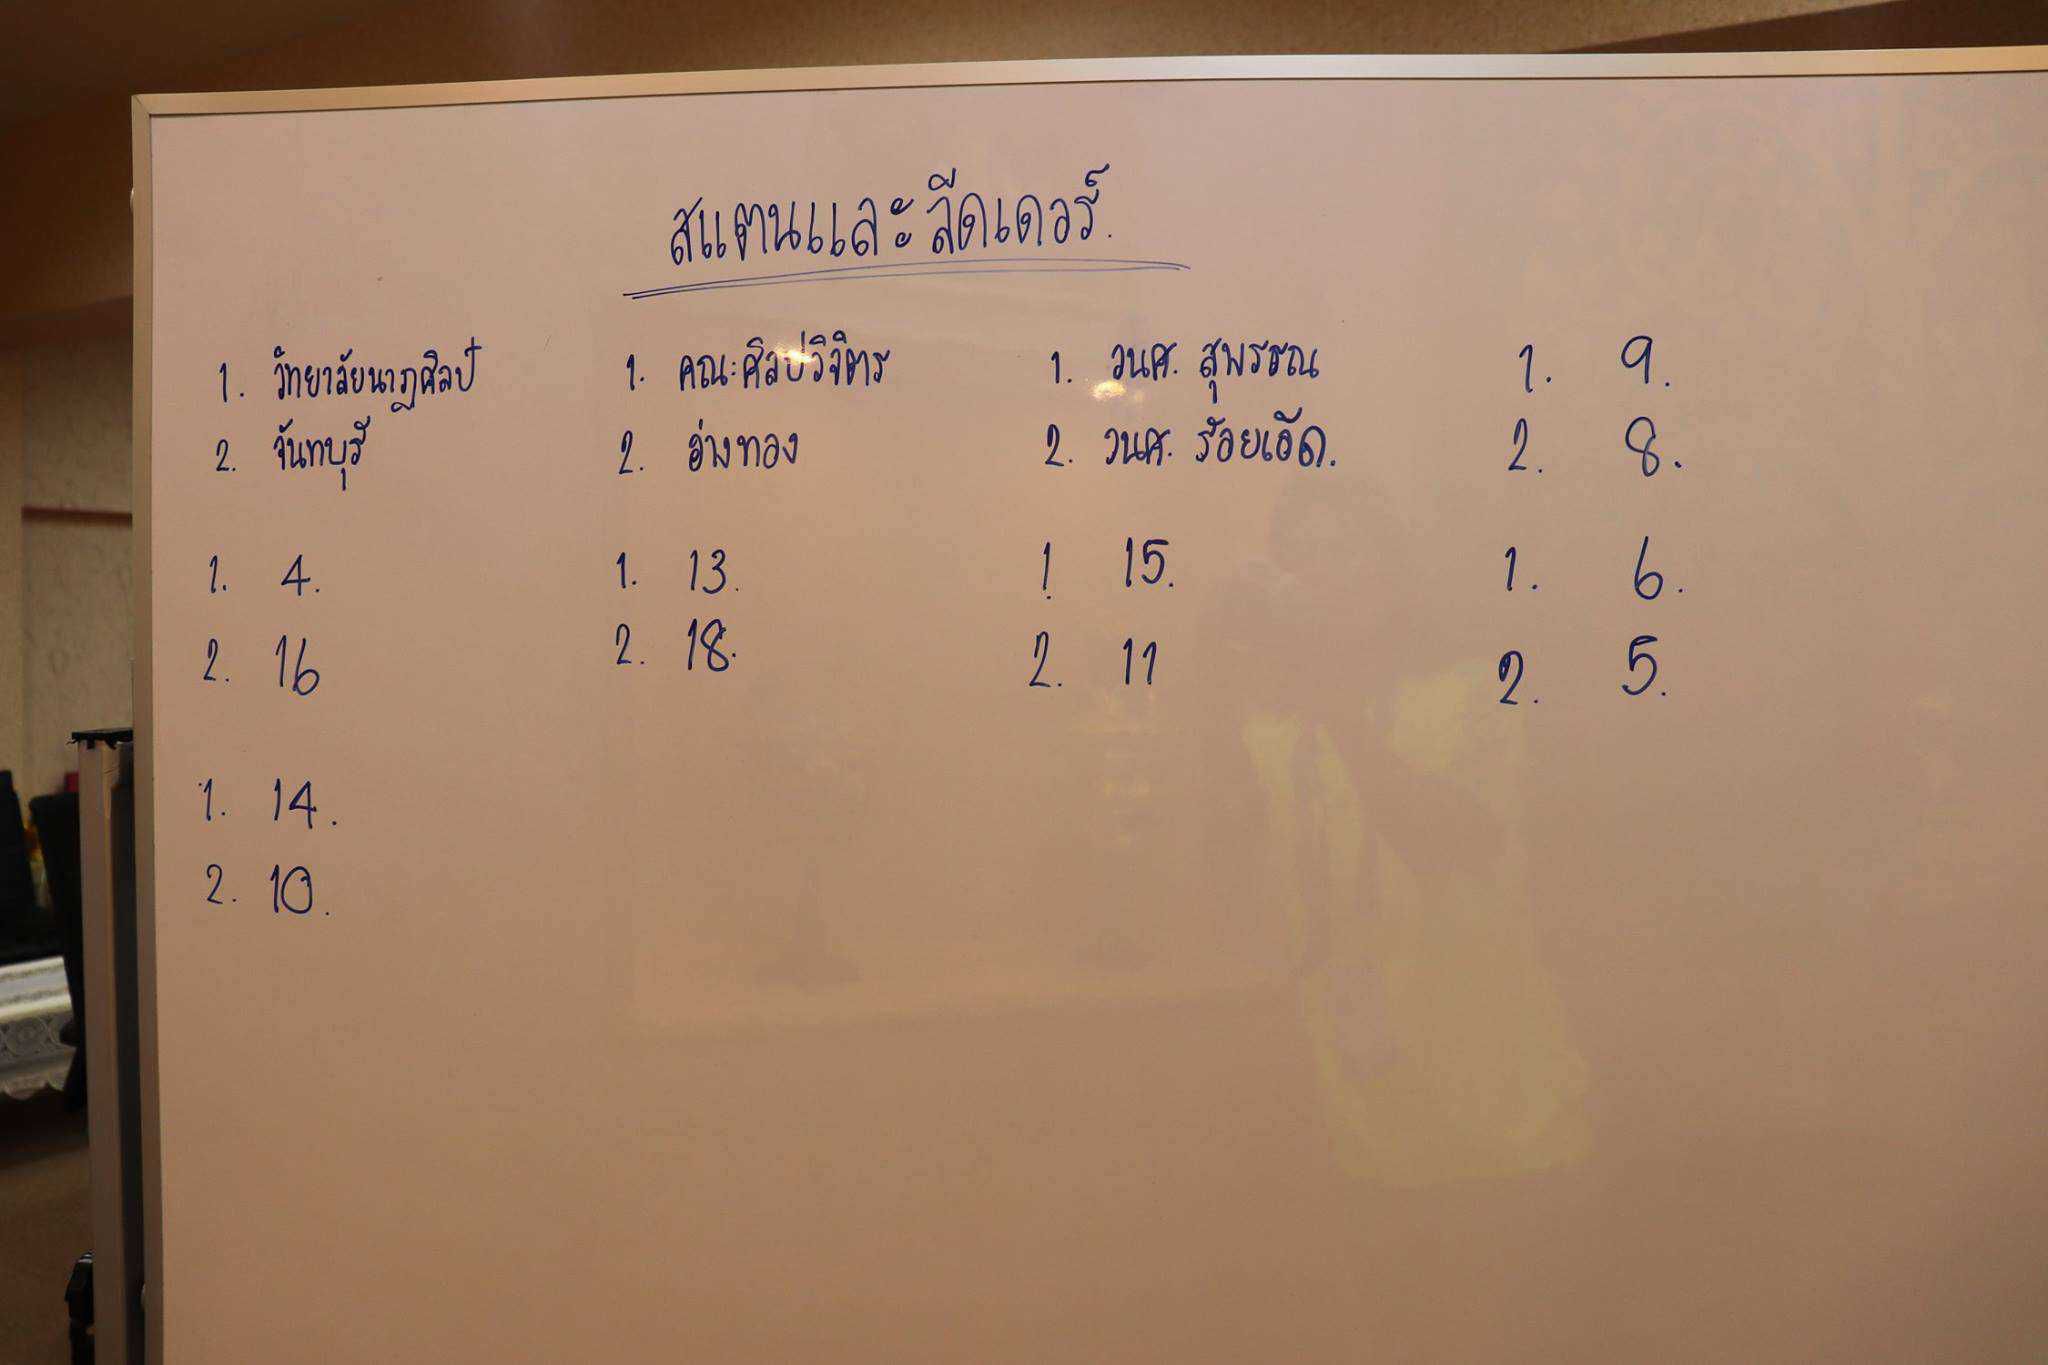 สแตนและลีดเดอร์.
1. วิทยาลัยนาฏศิลป์ 1. คณะศิลปวิจิตร 1. วนศ. สุพรรณ 1. 9.
2. จันทบุรี 2. อ่างทอง 2. วนศ. ร้อยเอ็ด. 2. 8.
1. 4. 1. 13. 1. 15. 1. 6.
2. 16 2. 18. 2. 11 2. 5.
1. 14.
2. 10.